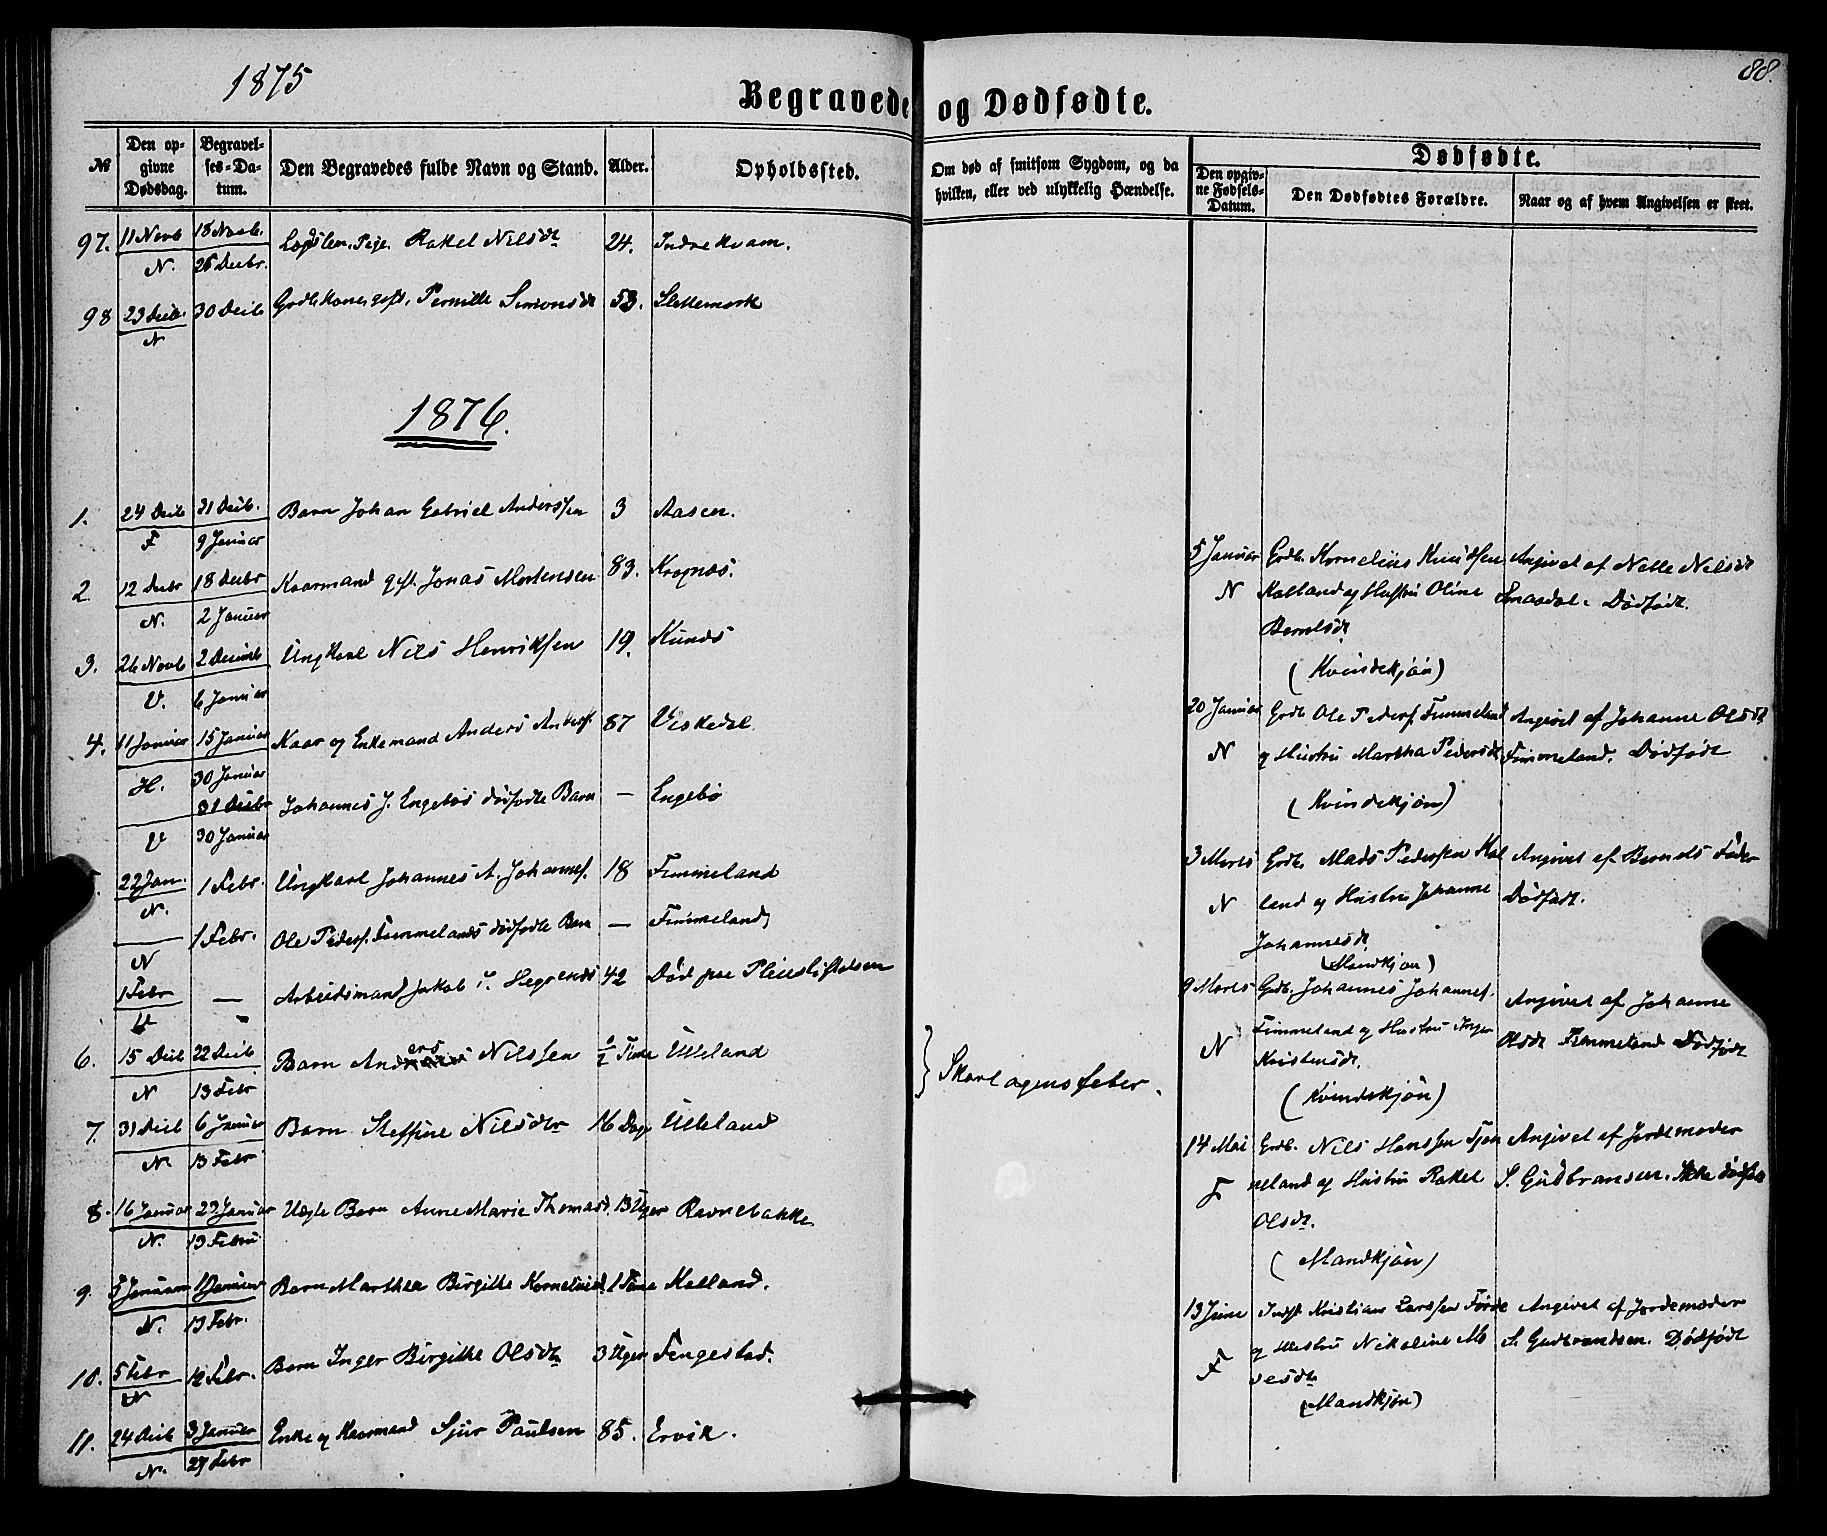 1875
88.
Begravede og Dødfødte.
№
Den opgivne Dødsdag.
Begravelses-Datum.
Den Begravedes fulde Navn og Stand.
Alder.
Opholdssted.
Om død af smitsom Sygdom, og da hvilken, eller ved ulykkelig Hændelse.
Dødfødte.
Den opgivne Fødsels-Datum.
Den Dødfødtes Forældre.
Naar og af hvem Angivelsen er skeet.
97. 11 Novb 18 Novb. Pige Rakel Nilsdt 24. Indrekvam.
N. 26 Decbr.
98 23 Decb. 30 Decb Gdbkone, gift, Pernille Simonsdt 53. Slettemark
N
1876.
1. 24 Decb 31 Decb. Barn Johan Gabriel Anderssen 3 Aasen.
F 9 Januar
2. 12 Decbr 18 Decbr Kaarmand gift Jonas Mortensen 83. Krognæs.
N. 2 Januar
3. 26 Novb 2 Decemb Ungkarl Nils Henriksen 19.
V. 6 Januar
4. 11 Januar 15 Januar Kaar og Enkemand Anders Anders. 87
H. 30 Januar
31 Decbr Johannes J. Engebøs dødfødte Barn — Engebø
V 30 Januar
22 Jan. 1 Febr. Ungkarl Johannes A. Johannes. 18 Fimmeland
N.
— 1 Febr. Ole Peders. Fimmelands dødfødte Barn — Fimmeland
N
1 Febr — Arbeidsmand Jakob 42 Død paa Pleiestiftelsen
V
6. 15 Decb 22 Decb Barn Anders Nilssen ½ Time Ulleland
N 13 Febr
7. 31 Decb 6 Januar Barn Steffine Nilsdtr 16 Dage Ulleland
N. 13 Febr
Skarlagensfeber.
8. 16 Januar 22 Januar Uægte Barn Anne Marie Thomasd. 13 Uger Ravnebakke
N. 13 Febru
9. 5 Januar Januar Barn Marthea Birgithe 1 Time Kalland.
N. 13 Febr.
10. 5 Febr 12 Febr. Barn Inger Birgithe Olsdt 3 Uger Tengestad.
N
11. 24 Decb 3 Januar Enke og Kaarmand Sjur Paulsen 85. Ervik.
N. 27 Febr
5 Januar Grdb. Kornelius Knudsen Angivet af Nelle Nilsdt
N Kalland og Hustru Oline Dødfødt.
Berntsdt
(Kvindekjøn)
20 Januar Grdb Ole Peders. Fimmeland Angivet af Johanne Olsdt
N og Hustru Martha Pedersdt Fimmeland. Dødfødt
(Kvindekjøn)
3 Marts Grdb. Mads Pederssen Kal Angivet af Barnets Fader
N land og Hustru Johanne Dødfødt.
Johannesdt.
(Mandkjøn)
9 Marts Grdb. Johannes Johannes. Angivet af Johanne
N Fimmeland og Hustru Inger Olsdt Fimmeland Dødfødt
Kristensdt.
(Kvindekjøn)
14 Mai Grdb. Nils Hanssen Angivet af Jordemoder
F neland og Hustru Rakel S. Gudbransen. Ikke dødfød
Olsdt.
(Mandkjøn)
13 Juni Indst Kristian Larssen Førde Angivet af Jordemoder
F og Hustru Nikoline Mo S. Gudbrandsen. Dødfødt
sesdt
(Mandkjøn)